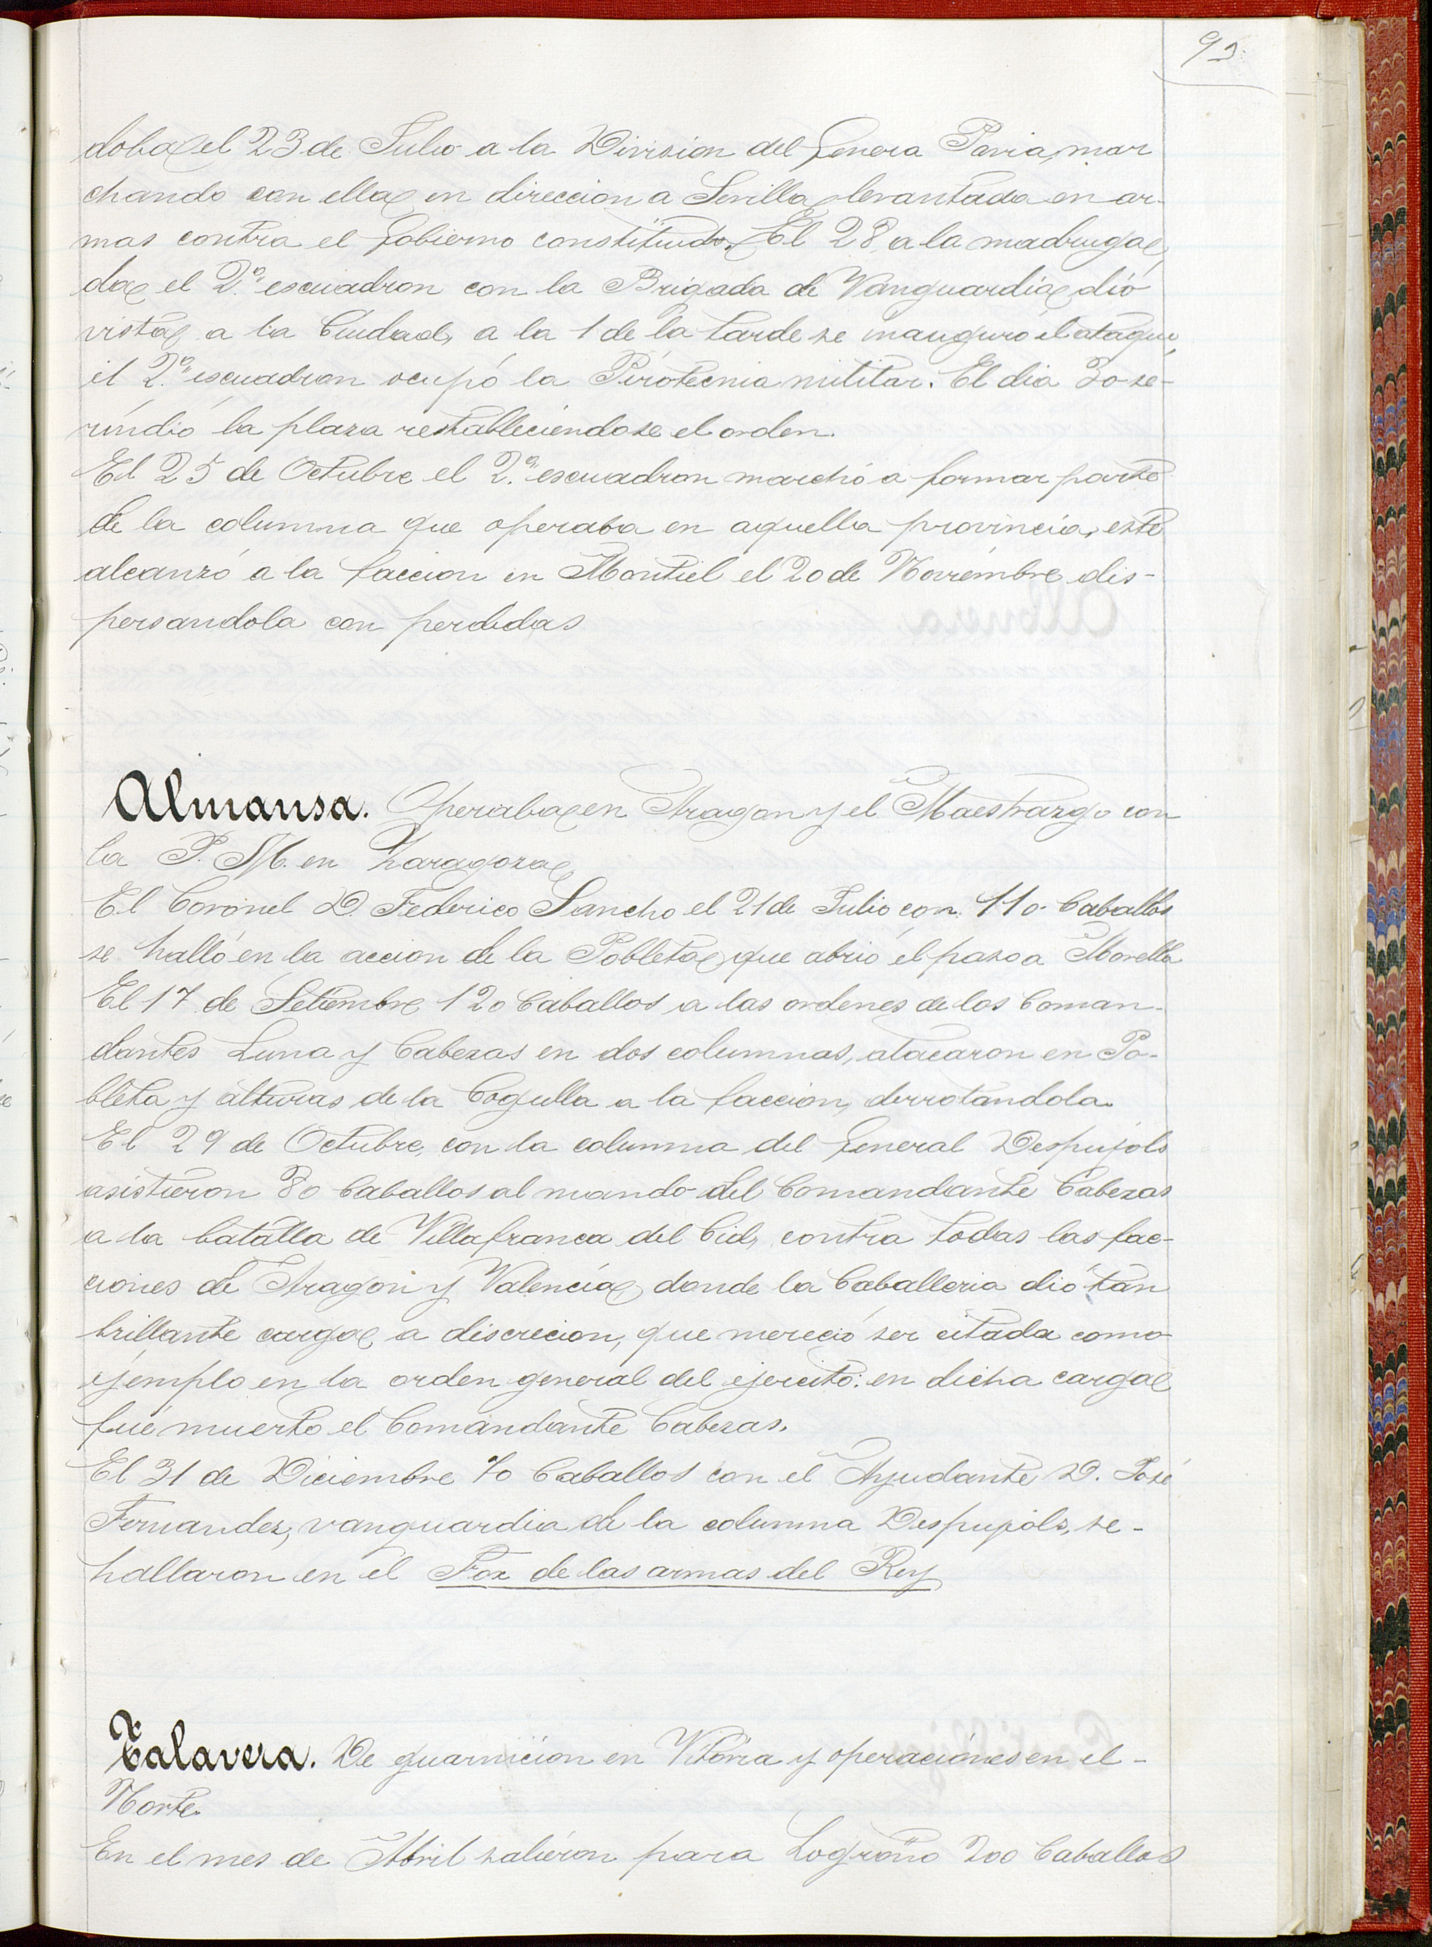 93.
doba el 23 de Julio a la Division del Genera Pavia, mar
chando con ella en direccion a Sevilla, levantada en ar-
mas contra el Gobierno constituido. El 28, a la madruga
da el 2.º escuadron con la Brigada de Vanguardia dió
vista a la Ciudad, a la 1 de la tarde se inauguro el ataque
el 2.º escuadron ocupó la Pirotecnia militar. El dia 30 se-
rindió la plaza restableciendose el orden.
El 25 de Octubre el 2.º escuadron marchó a formar parte
de la columna que operaba en aquella provincia, este
alcanzó a la faccion en Montiel el 20 de Noviembre dis-
persandola con perdidas
Almansa. Operaba en Aragon y el Maestrazgo con
la P. M. en Zaragoza
El Coronel D. Federico Sancho el 21 de Julio con 110 Caballos
se halló en la accion de la Pobleta que abrió el paso a Morella
El 17 de Setiembre 120 Caballos a las ordenes de los Coman-
dantes Luna y Cabezas en dos columnas, atacaron en Po-
bleta y alturas de la Cogulla a la faccion, derrotandola.
El 29 de Octubre, con la columna del General Despujols
asistieron 80 Caballos al mando del Comandante Cabezas
a la batalla de Villafranca del Cid, contra todas las fac-
ciones de Aragon y Valencia, donde la Caballeria dió tan
brillante carga a discrecion, que mereció ser citada como
ejemplo en la orden general del ejercito: en dicha carga
fué muerto el Comandante Cabezas.
El 31 de Diciembre 70 Caballos con el Ayudante D. José
Fernandez, vanguardia de la columna Despujols, se-
hallaron en el Foz de las armas del Rey
Talavera. De guarnicion en Vitoria y operaciones en el-
Norte.
En el mes de Abril salieron para Logroño 200 Caballos